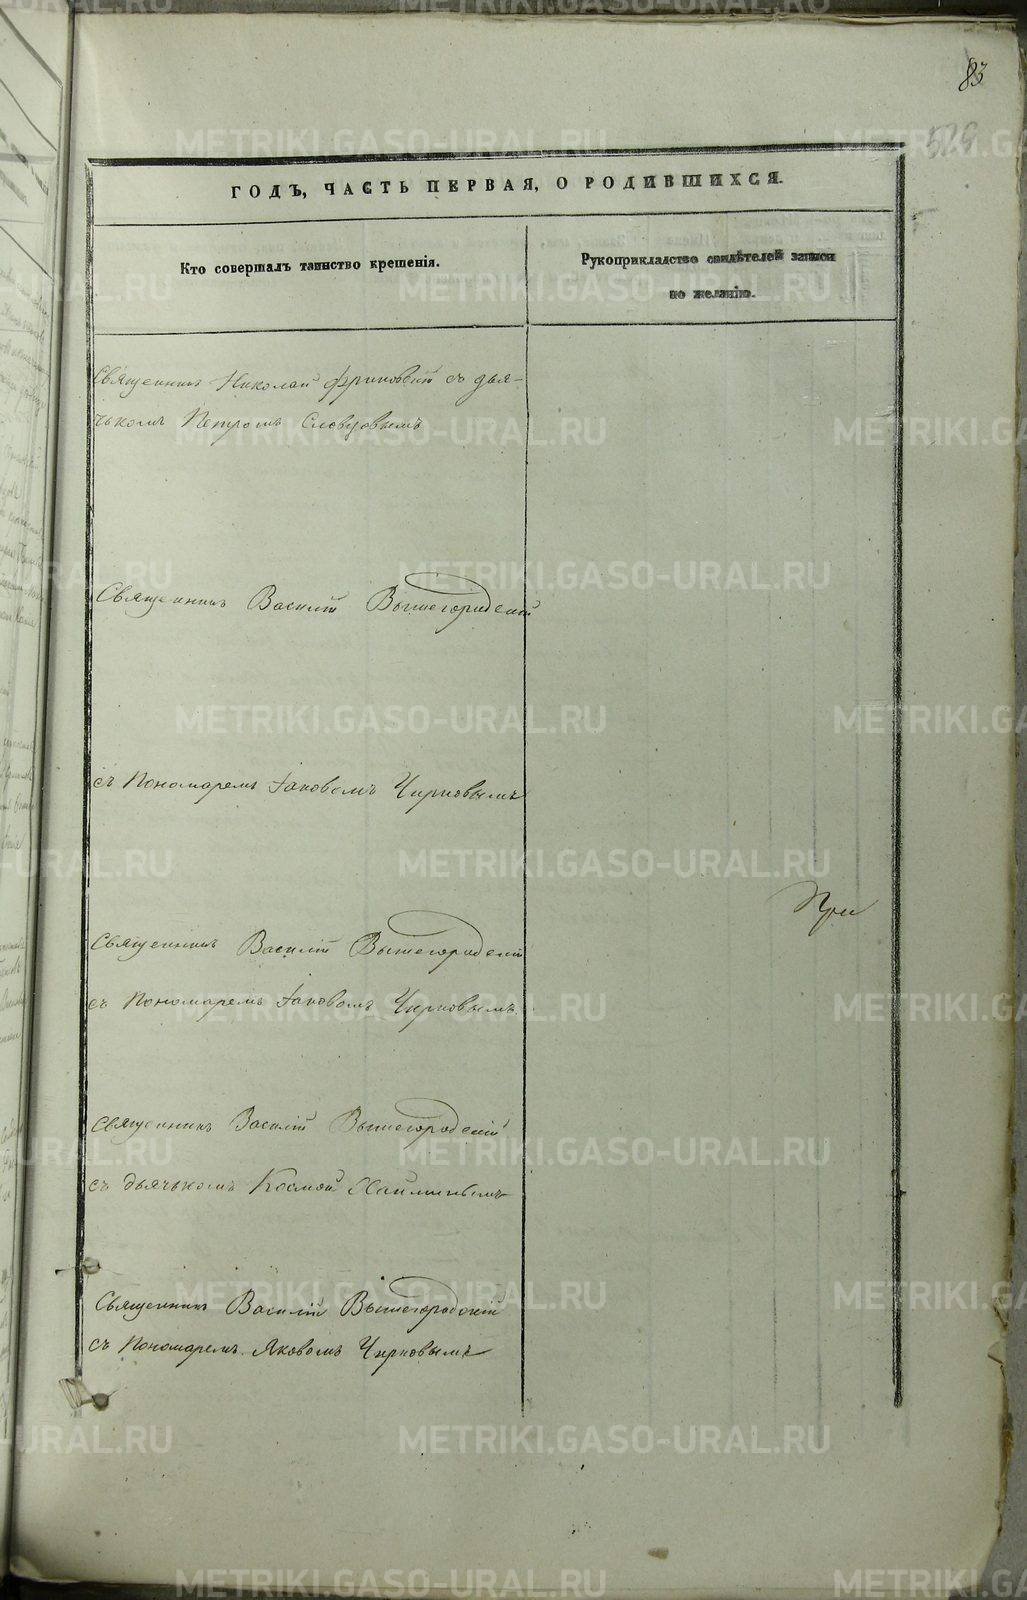 83
529
ГОДЪ, ЧАСТЬ ПЕРВАЯ, О РОДИВШИХСЯ.
Кто совершалъ таинство крещенія.
Рукоприкладство свидѣтелей записи
по желанію.
Священникъ Николай с дья-
чькомъ Петромъ Словцовымъ
Священникъ Василій Вышегородскій
съ Пономаремъ Іаковомъ Чирковымъ
При
Священникъ Василій Вышегородскій
съ Пономаремъ Іаковомъ Чирковымъ
Священникъ Василій Вышегородскій
съ дьячькомъ Космой
Священникъ Василій Вышегородскій
съ Пономаремъ Яковомъ Чирковымъ
METRIKI.GASO-URAL.RU